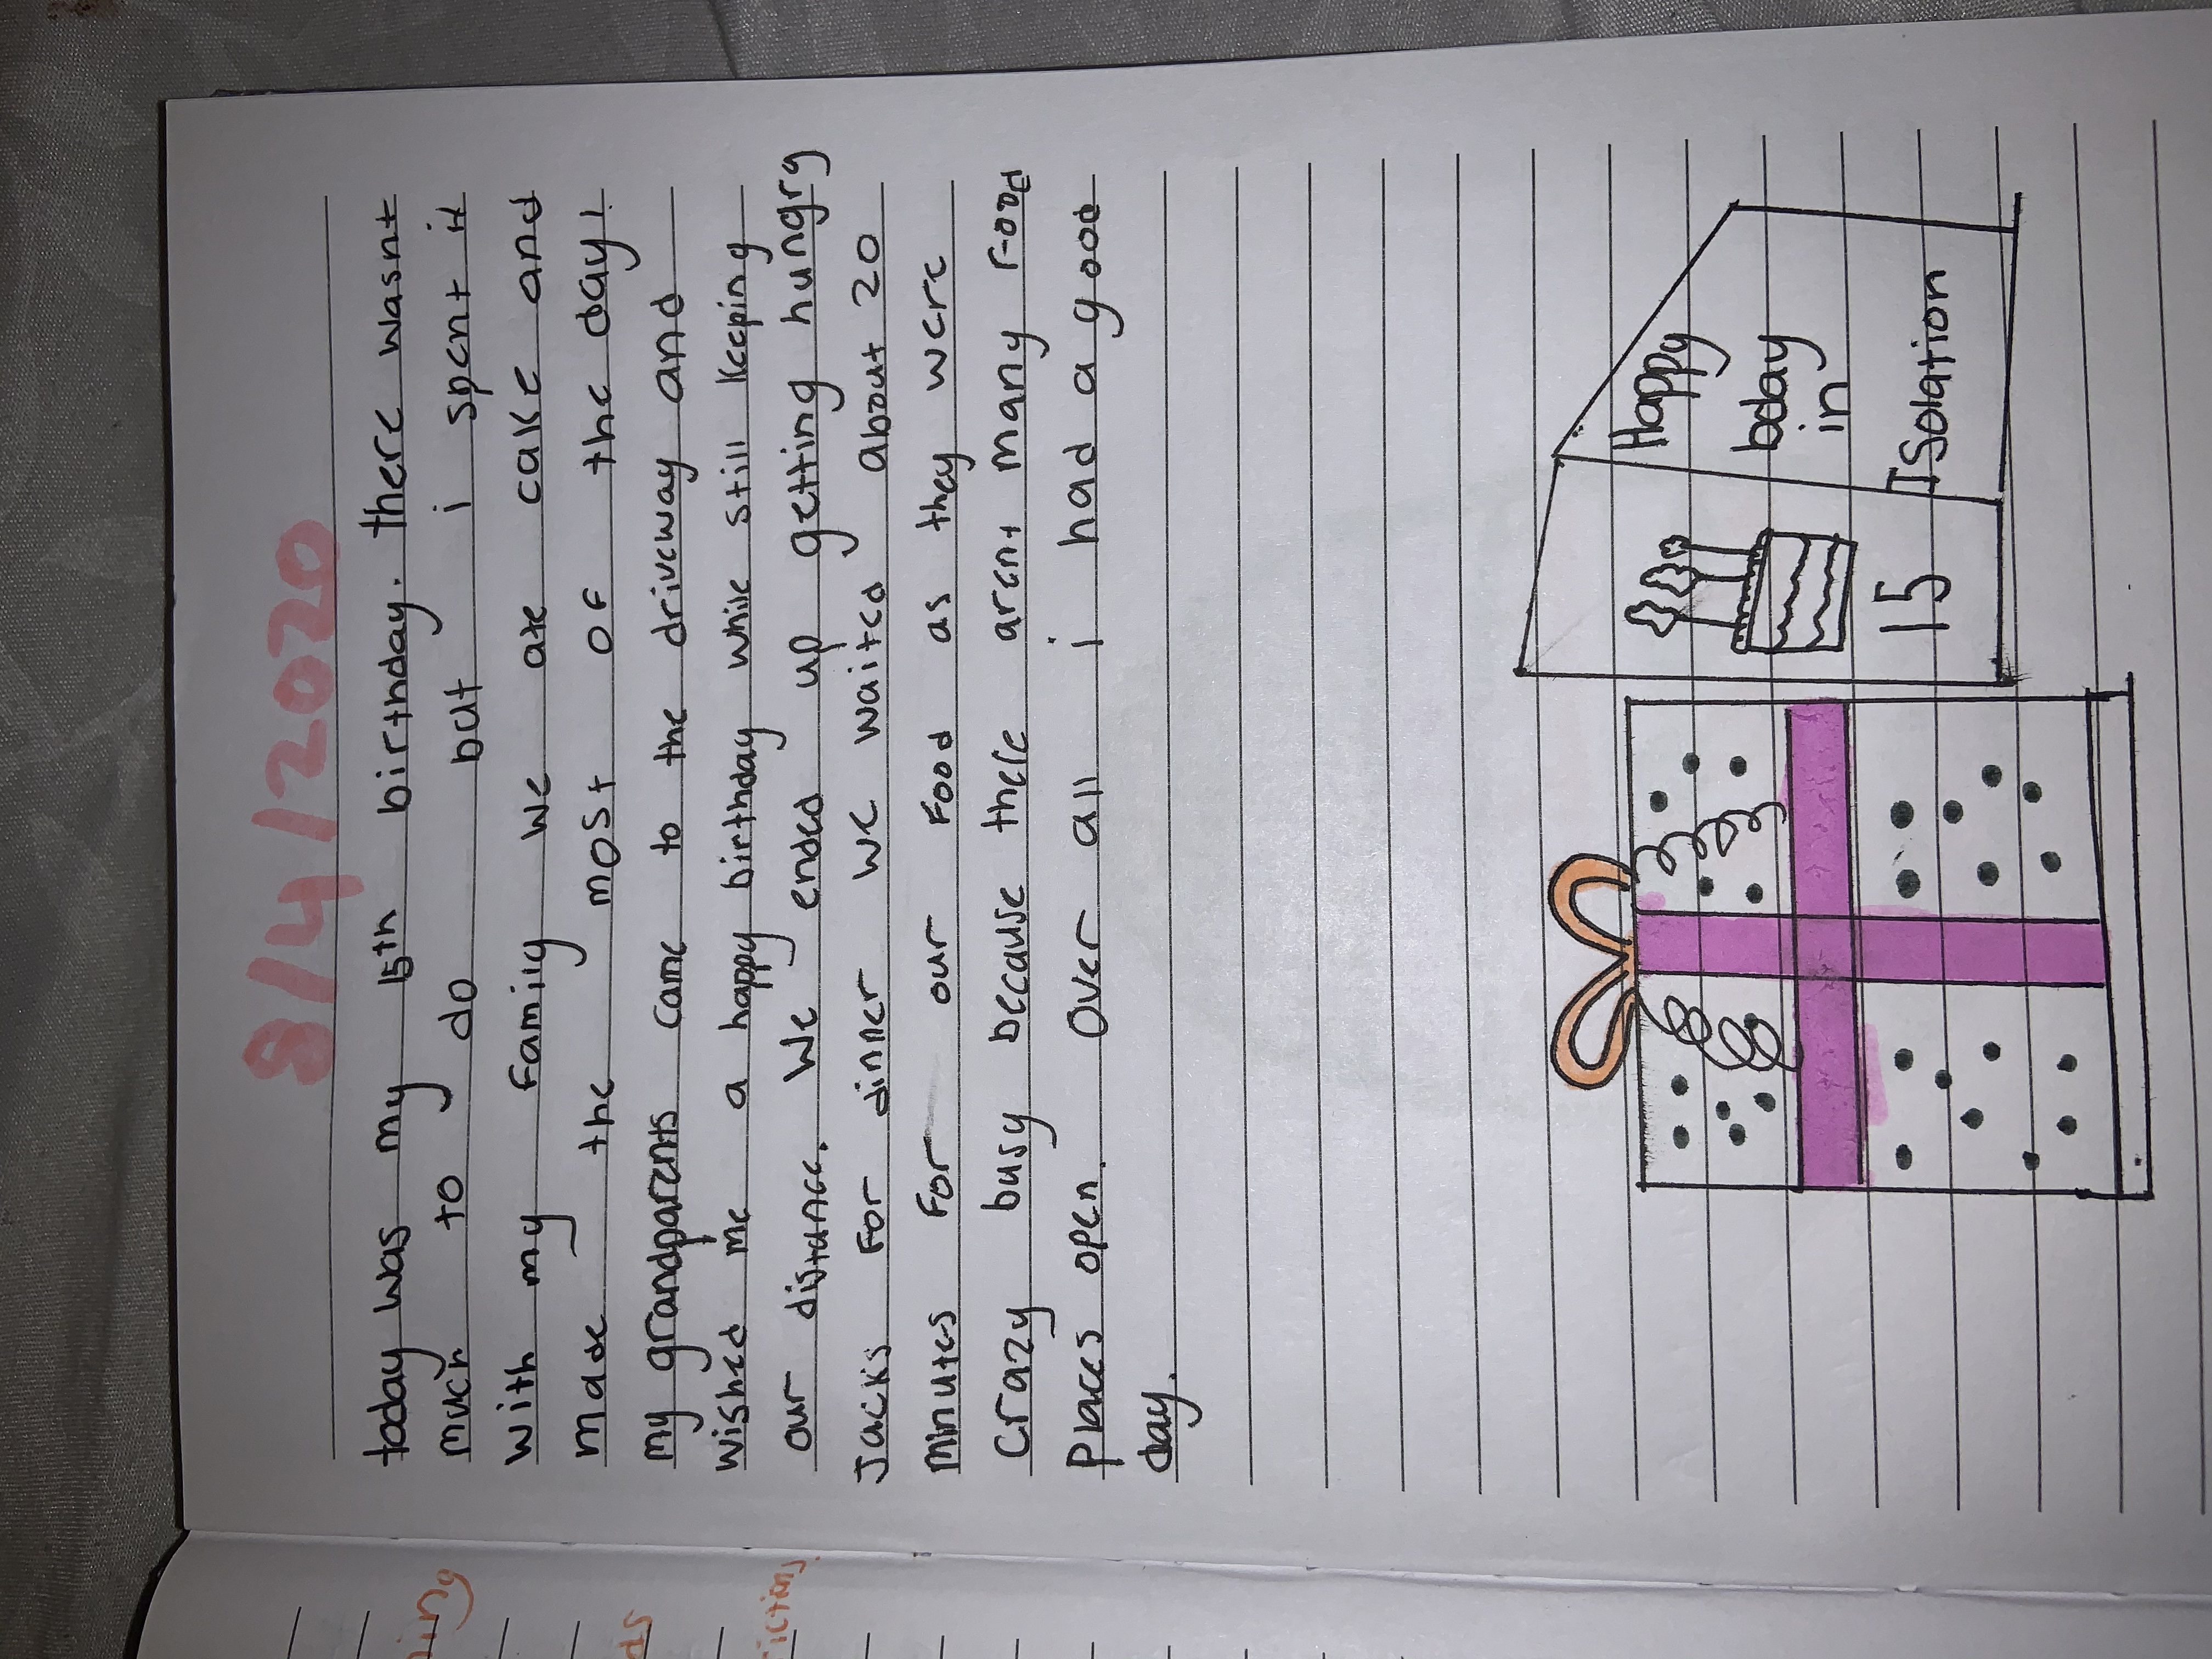 8/4/2020
today was my 15th birthday. there wasnt
much to do but i spent it
with my family we ate cake and
made the most of the day!
my grandparents came to the driveway and
wished me a happy birthday while still keeping
our distance. We ended up getting hungry
Jacks for dinner we waited about 20
minutes for our food as they were
crazy busy because there arent many food
places open. Over all i had a good
day.
Happy
bday
in
Isolation
15